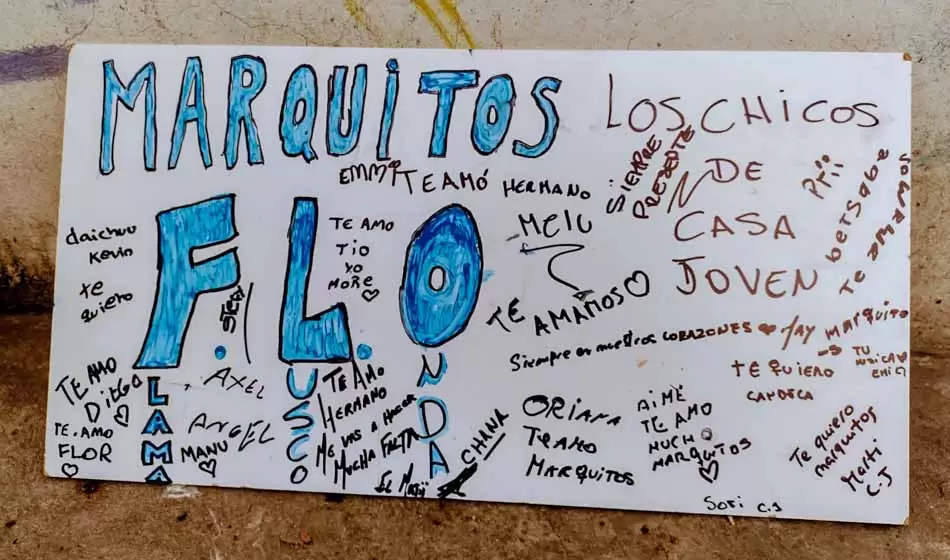 MARQUITOS
F.L.O
LAMA
USCO
NDA
EMMI TE AMÓ HERMANO
LOS CHICOS
DE
CASA
JOVEN
SIEMPRE
PRESEDTE
bETSAbE
TE AMAMOS
MELU
TE AMAMOS
daichuu
Kevin
te
quiero
TE AMO
TIO
YO
MORE
Siempre en nuestros CORAZONES
MARQUITO
TE QUIERO
TU
CANDELA
TE AMO
DIEGO
TE AMO
FLOR
AXEL
ANGEL
MANU
TE AMO
HERMANO
ME VAS A HACER
MUCHA FALTA
CHANA
ORIANA
TEAMO
MARQUITOS
AIMÉ
TE AMO
MUCHO
MARQUITOS
Te quiero
marquitos
Marti
C.J
Sofi C.J